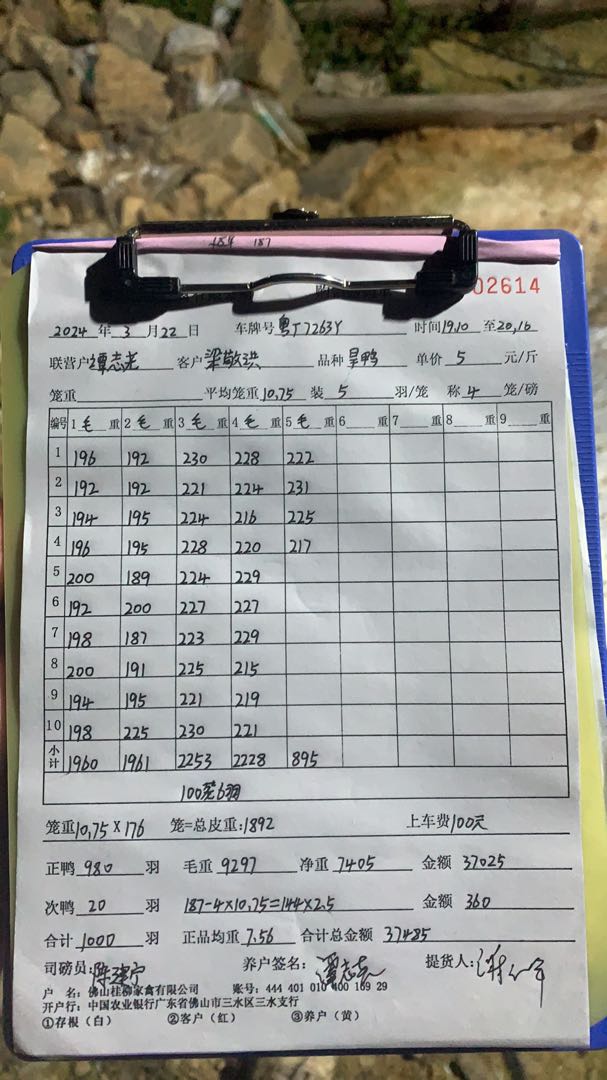 184 187
02614
2024 年 3 月 22 日 车牌号 粤J7263Y 时间 19.10 至 20.16
联营户 谭志光 客户 梁敬洪 品种 旱鸭 单价 5 元/斤
笼重 平均笼重 10.75 装 5 羽/笼 称 4 笼/磅
编号 1 毛 重 2 毛 重 3 毛 重 4 毛 重 5 毛 重 6 重 7 重 8 重 9 重
1 196 192 230 228 222
2 192 192 221 224 231
3 194 195 224 216 225
4 196 195 228 220 217
5 200 189 224 229
6 192 200 227 227
7 198 187 223 229
8 200 191 225 215
9 194 195 221 219
10 198 225 230 221
小计 1960 1961 2253 2228 895
100笼6羽
笼重 10.75×176 笼=总皮重:1892 上车费100元
正鸭 980 羽 毛重 9297 净重 7405 金额 37025
次鸭 20 羽 187-4×10.75=144×2.5 金额 360
合计 1000 羽 正品均重 7.56 合计总金额 37485
司磅员: 养户签名: 谭志光 提货人:
户 名: 佛山桂柳家禽有限公司 账号: 444 401 010 400 169 29
开户行: 中国农业银行广东省佛山市三水区三水支行
①存根(白) ②客户(红) ③养户(黄)